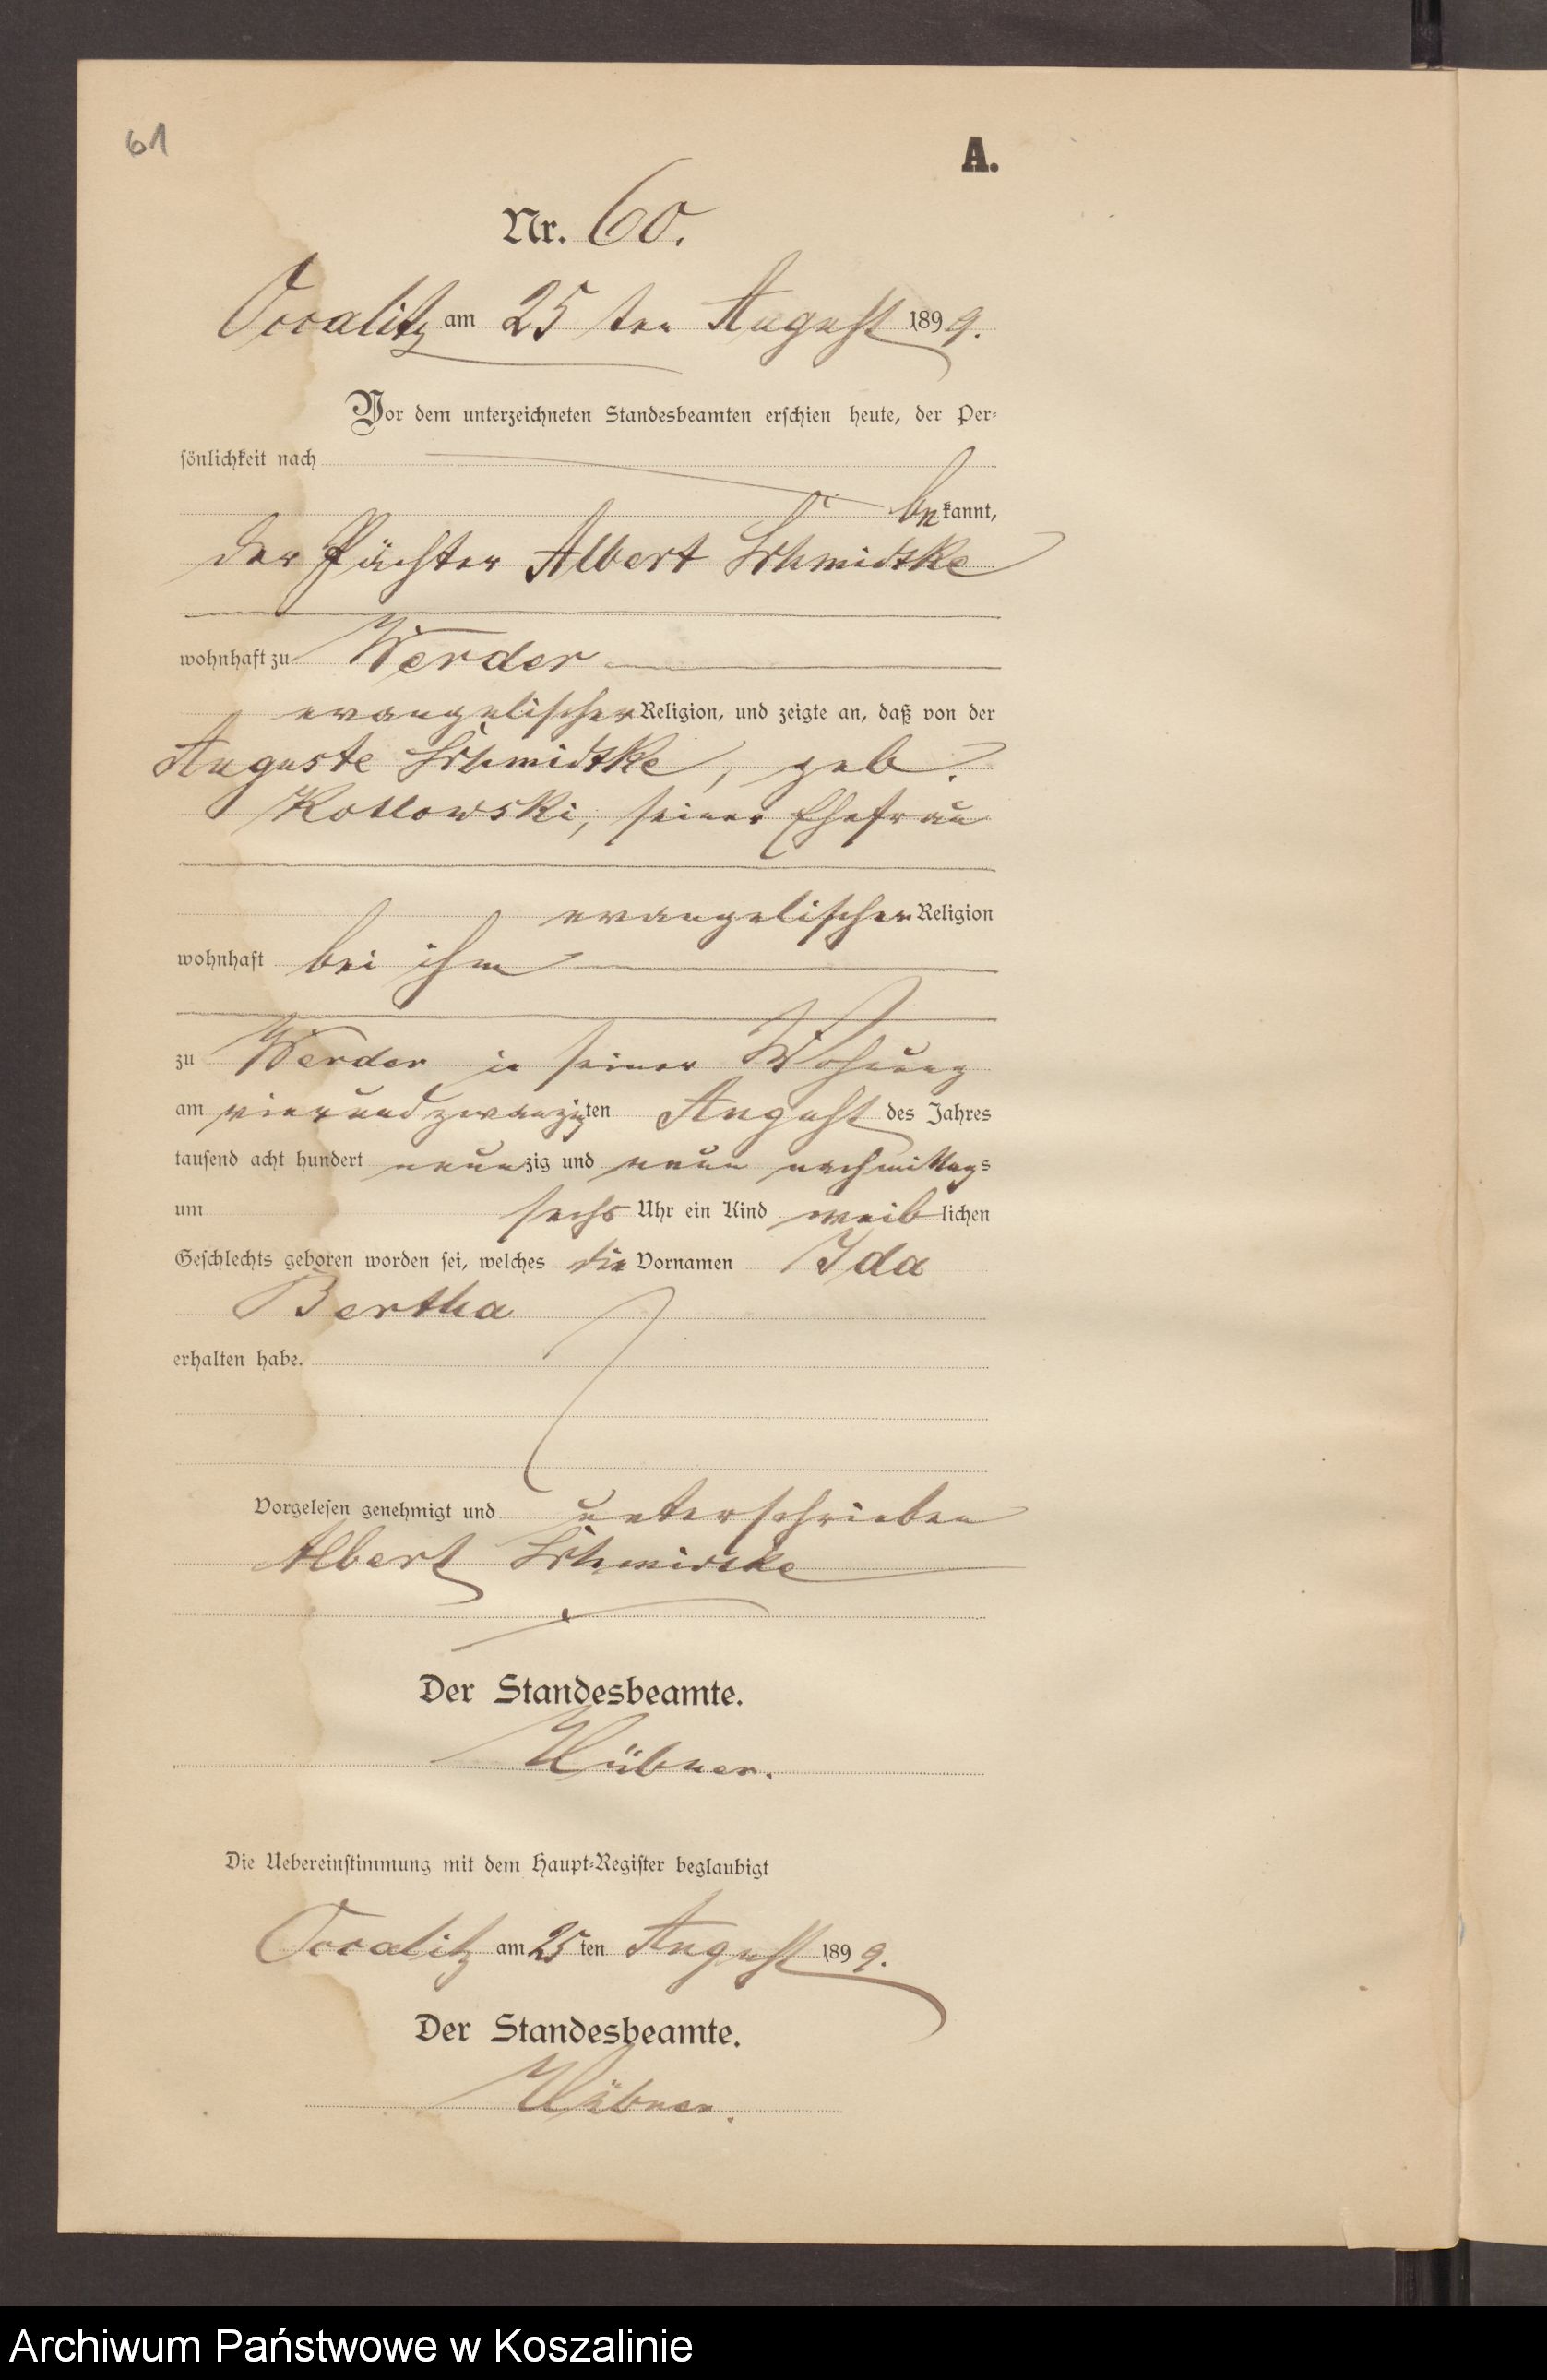 61
A.
Nr. 60.
Occalitz am 25 ten August 1899.
Vor dem unterzeichneten Standesbeamten erschien heute, der Per-
sönlichkeit nach
bekannt,
der Pächter Albert Schmidtke
wohnhaft zu Werder
evangelischer Religion, und zeigte an, daß von der
Auguste Schmidtke, geb.
Kotlowski, seiner Ehefrau
evangelischer Religion
wohnhaft bei ihm
zu Werder in seiner Wohung
am vierundzwanzigten August des Jahres
tausend acht hundert neunzig und neun nachmittags
um sechs Uhr ein Kind weiblichen
Geschlechts geboren worden sei, welches die Vornamen Ida
Bertha
erhalten habe.
Vorgelesen genehmigt und unterschrieben
Albert Schmidtke
Der Standesbeamte.
Hübner.
Die Uebereinstimmung mit dem Haupt-Register beglaubigt
Occalitz am 25 ten August 1899.
Der Standesbeamte.
Hübner.
Archiwum Państwowe w Koszalinie